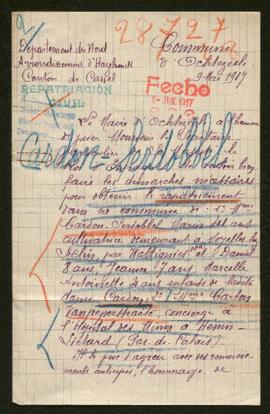 28727
Département du Nord
Arrondissement d'Hazebrouck
Canton de Cassel
Commune
d'Ochtezeele
9 Mai 1917
REPATRIACIÓN
CIVIL
Fecho
JUN. 1917
Le Maire d'Ochtezeele a l'honneur
de prier Monsieur le Secrétaire
Cardon-Serdobbel
de vouloir bien
faire les démarches nécessaires
pour obtenir le rapatriement
dans sa commune de 1º Mme
Cardon. Serdobbel Maria
cultivatrice demeurant à Noyelles lez
Seclin, par Wattignies et Daniel
8 ans, Jeanne 7 ans Marcelle
Antoinette 4 ans enfants de ladite
dame Cardon. 2º Mme Cardon
Vanpeperstraete, concierge à
l'Hôpital des Mines à Hénin-
Liétard (Pas de Calais)
Il le prie d'agréer avec ses remercie-
ments anticipés, l'hommage de